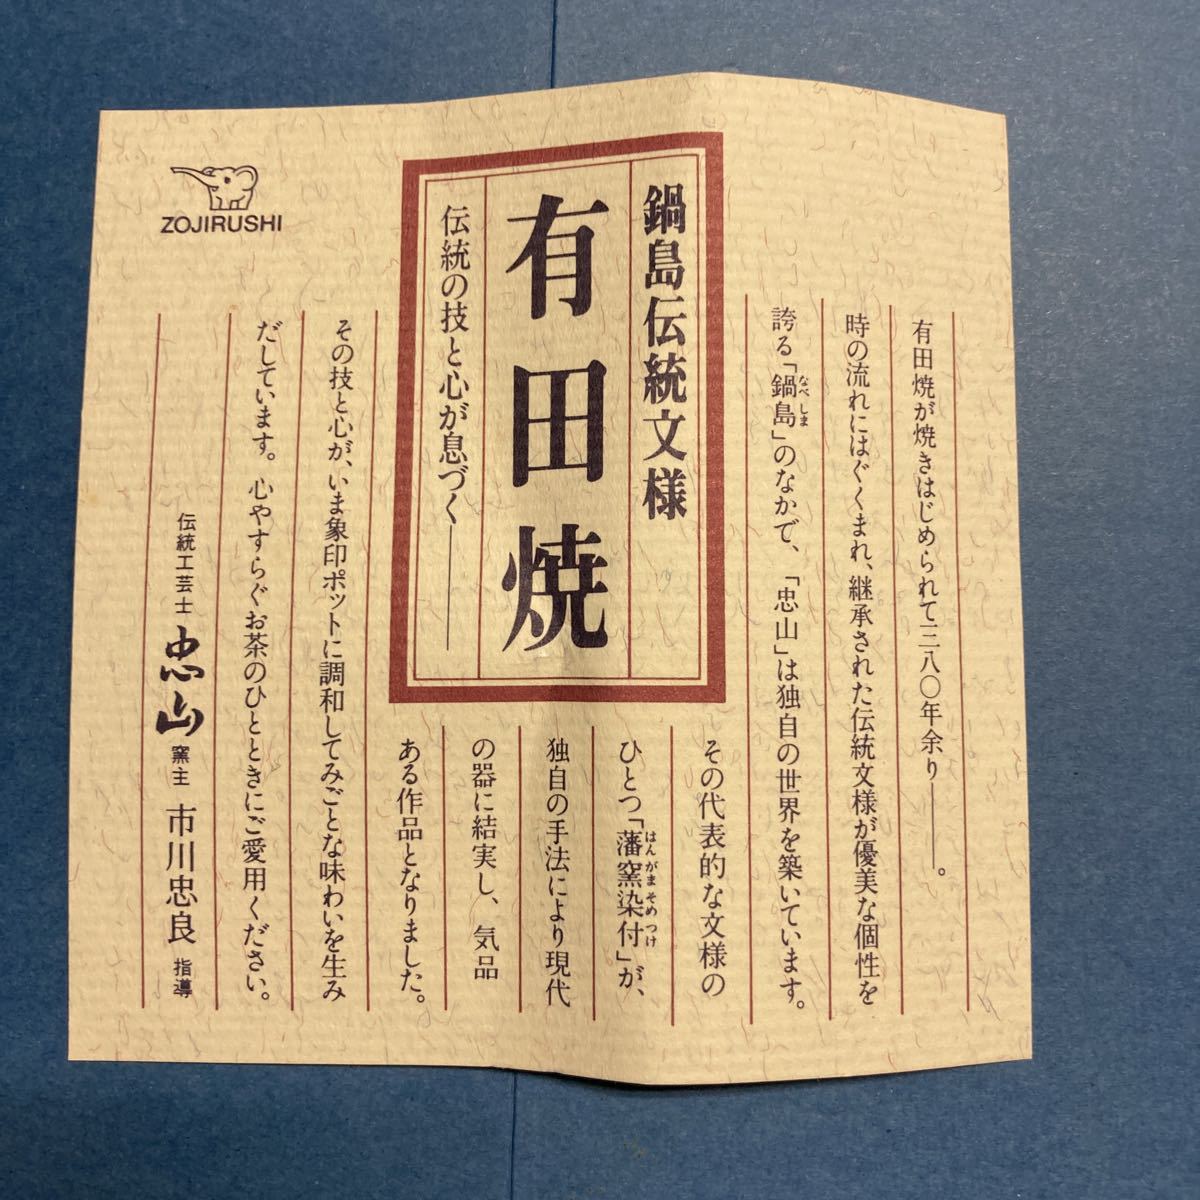 ZOJIRUSHI
鍋島伝統文様
有田焼
伝統の技と心が息づく――
有田焼が焼きはじめられて三八〇年余り――。
時の流れにはぐくまれ、継承された伝統文様が優美な個性を
誇る「鍋島」のなかで、「忠山」は独自の世界を築いています。
なべしま
その代表的な文様の
ひとつ「藩窯染付」が、
はんがまそめつけ
独自の手法により現代
の器に結実し、気品
ある作品となりました。
その技と心が、いま象印ポットに調和してみごとな味わいを生み
だしています。心やすらぐお茶のひとときにご愛用ください。
伝統工芸士 忠山 窯主 市川忠良 指導